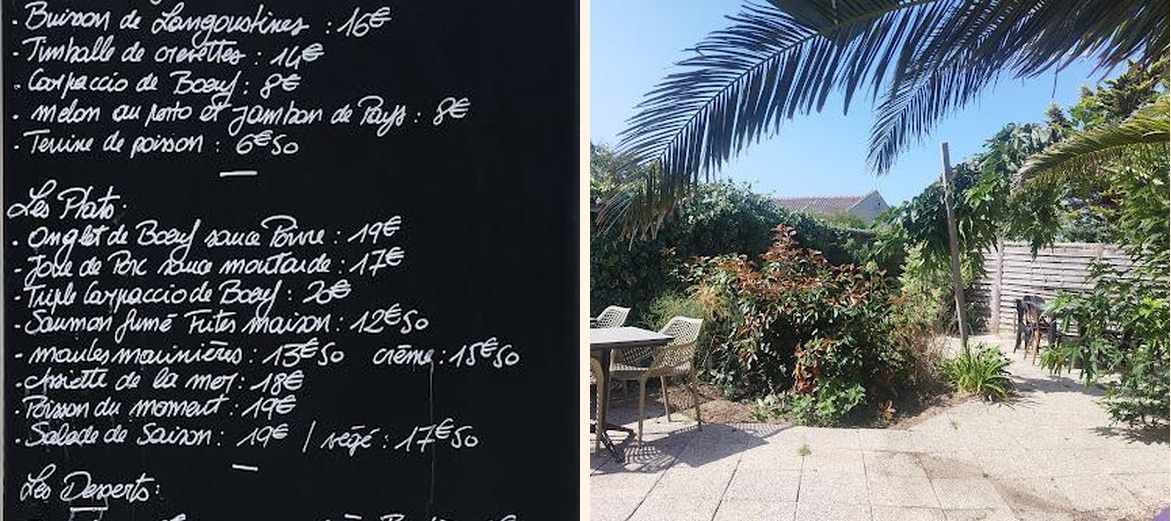 - Buisson de Langoustines : 16€
- Timballe de crevettes : 14€
- Carpaccio de Boeuf : 8€
- melon au porto et jambon de Pays : 8€
- Terrine de poisson : 6€50
Les Plats:
- Onglet de Boeuf sauce Poivre : 19€
- Joue de Porc sauce moutarde : 17€
- Triple Carpaccio de Boeuf : 20€
- Saumon fumé Frites maison : 12€50
- moules marinières : 13€50 crème : 15€50
- Assiette de la mer : 18€
- Poisson du moment : 19€
- Salade de Saison : 19€ / végé : 17€50
Les Desserts: